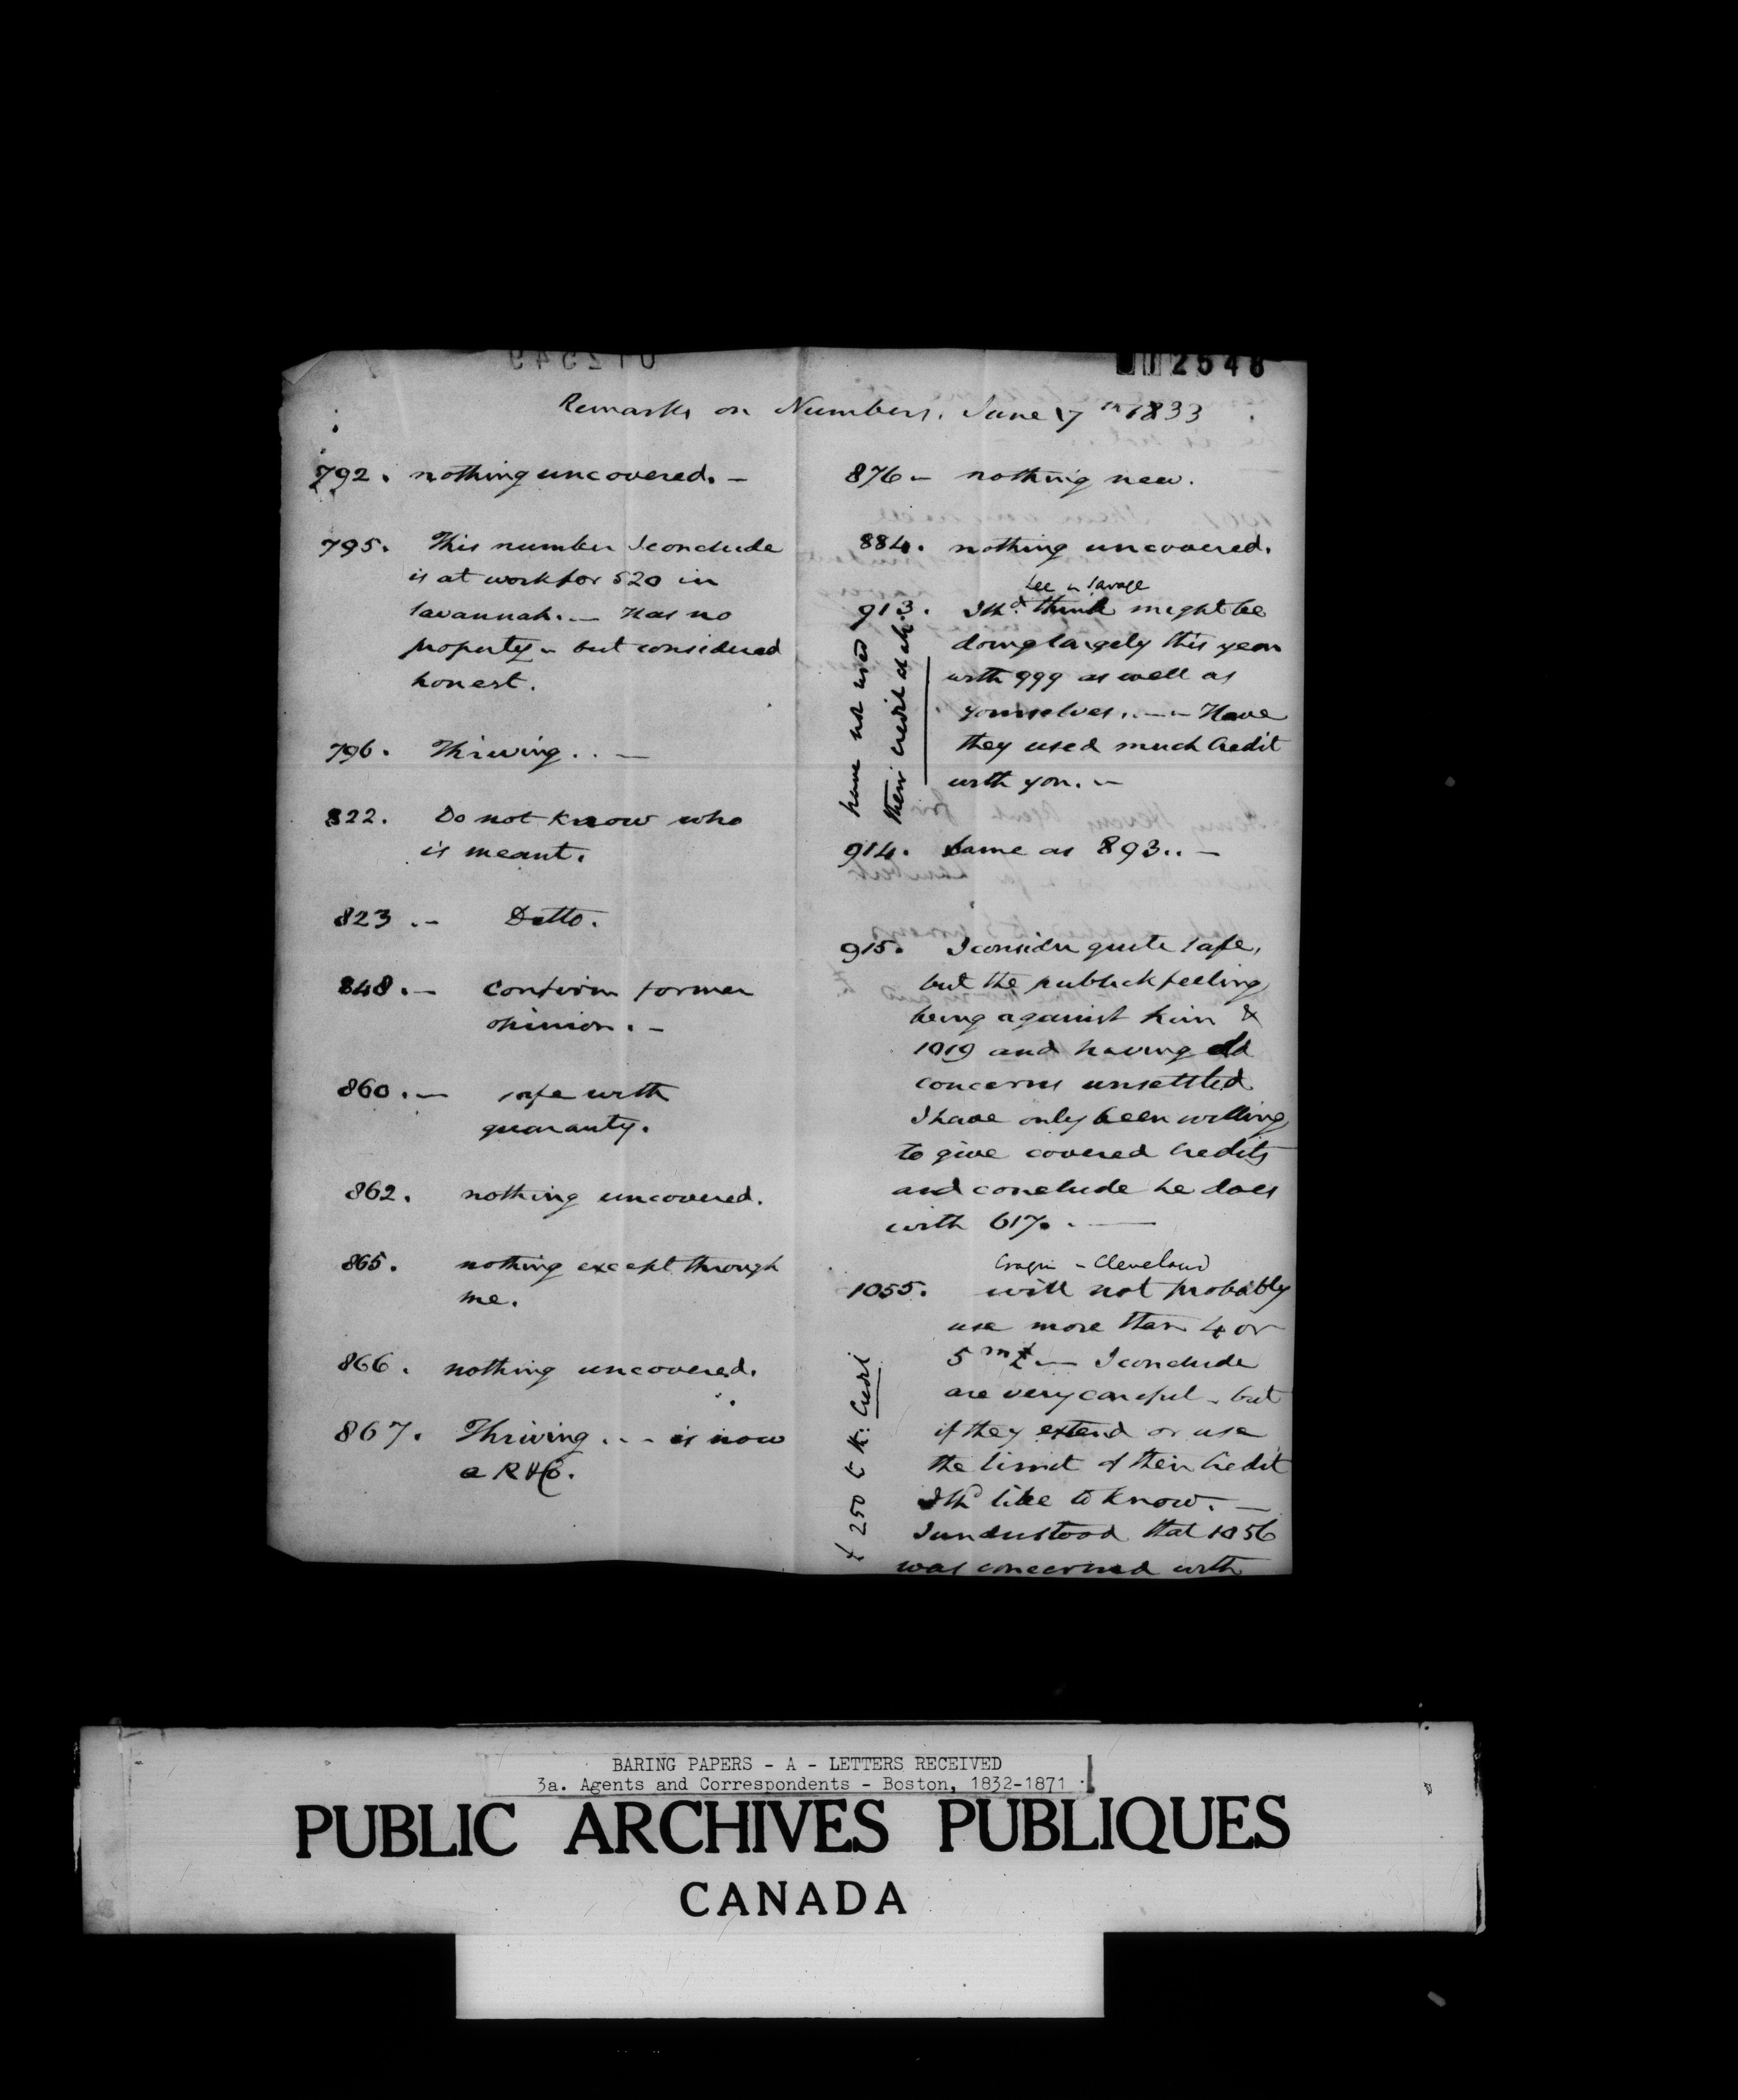 12548
Remarks on Numbers. June 17th 1833
792. nothing uncovered. -
795. This number I conclude
is at work for 520 in
Savannah. — Has no
property - but considered
honest.
796. Thriving . . —
822. Do not know who
is meant.
823 .- Ditto.
848 .- Confirm former
opinion. -
860 .- safe with
guaranty.
862. nothing uncovered.
865. nothing except through
me.
866. nothing uncovered.
867. Thriving . . - is now
a R & Co.
876 .- nothing new.
884. nothing uncovered.
Lee & Savage
913. I shd. think might be
doing largely this year
with 999 as well as
yourselves. .-- Have
they used much Credit
with you. -
have not used
their credit at all.
914. Same as 893. . -
915. I consider quite safe,
but the publick feeling
being against him &
1019 and having old
concerns unsettled
I have only been willing
to give covered Credits
and conclude he does
with 617. . —
Cragin - Cleveland
1055. will not probably
use more than 4 or
5 m £ — I conclude
are very careful - but
if they extend or use
the limit of their Credit
I shd like to know. —
I understood that 1056
was concerned with
£ 250 Credit
BARING PAPERS - A - LETTERS RECEIVED
3a. Agents and Correspondents - Boston, 1832-1871
PUBLIC ARCHIVES PUBLIQUES
CANADA